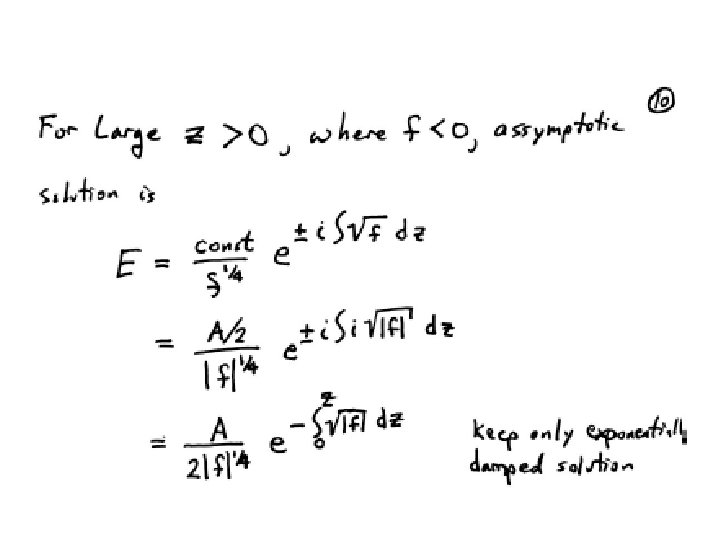 10
For Large z > 0, where f < 0, assymptotic
solution is
E = const / f^1/4 e^± i ∫√f dz
= A/2 / |f|^1/4 e^± i ∫ i √|f| dz
= A / 2|f|^1/4 e^- ∫_0^z √|f| dz
keep only exponentially
damped solution